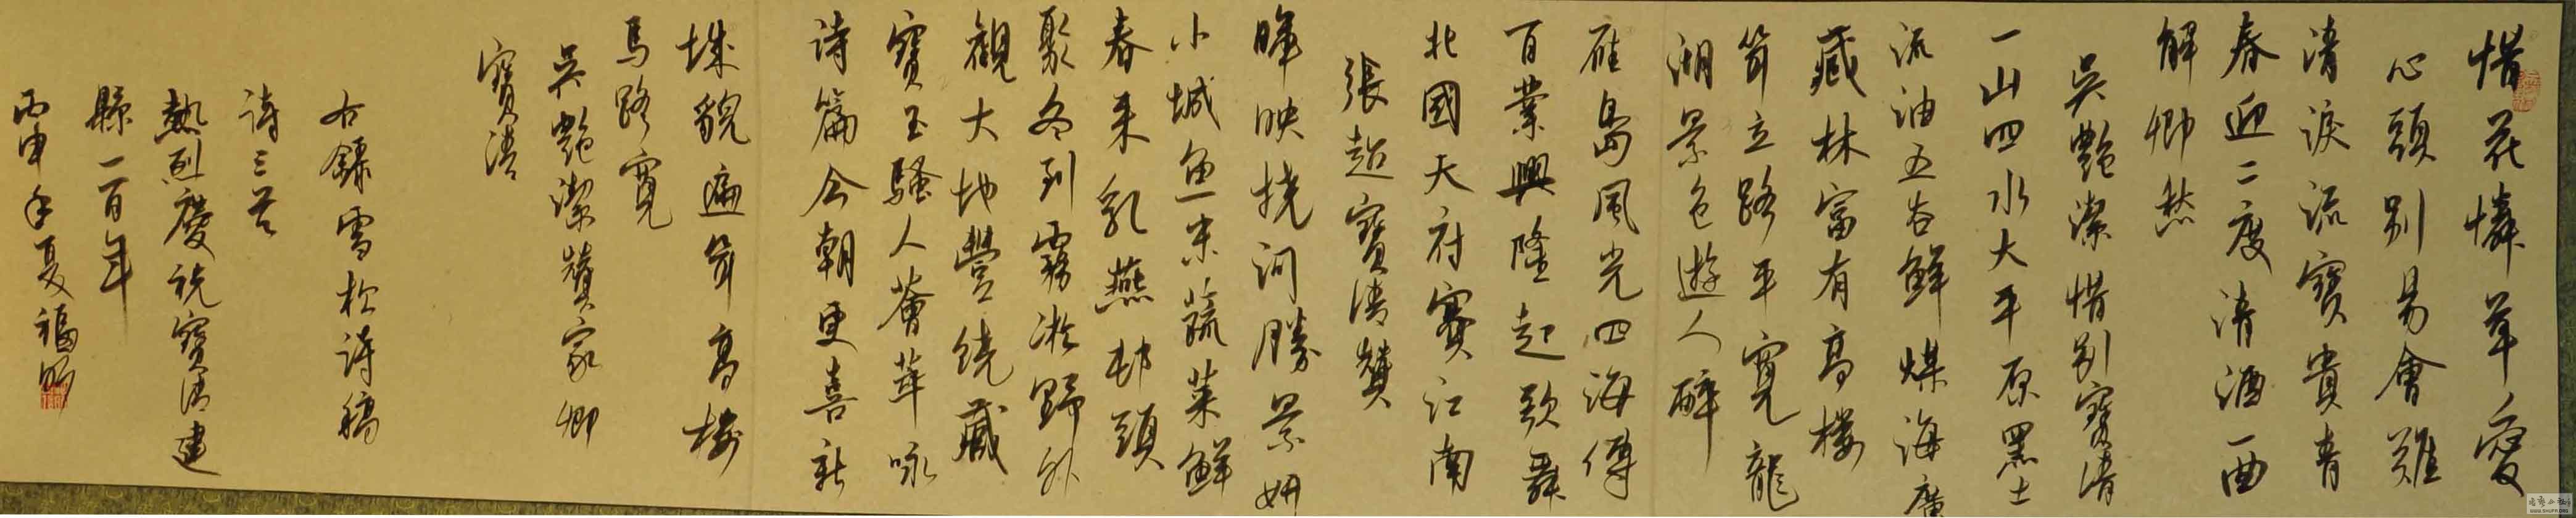 惜花憐草愛
心頭別易會難
清淚流寶貴青
春迎二度清酒一面
解卿愁
吳艷潔惜別寶清
一山四水大平原黑土
流油五谷鮮煤海廣
藏林富有高樓
聳立路平寬龍
湖景色遊人醉
雁島風光四海傳
百業興隆起歌舞
北國天府賽江南
張超寶清贊
暉映撓河勝景妍
小城魚米蔬菜鮮
春來乳燕邨頭
聚冬到霧淞野外
觀大地豐饒藏
寶玉騷人薈萃咏
詩篇今朝更喜新
城貌遍聳高樓
馬路寬
吳艷潔贊家鄉
寶清
右錄雪松詩稿
詩三首
熱烈慶祝寶清建
縣一百年
丙申年夏福明